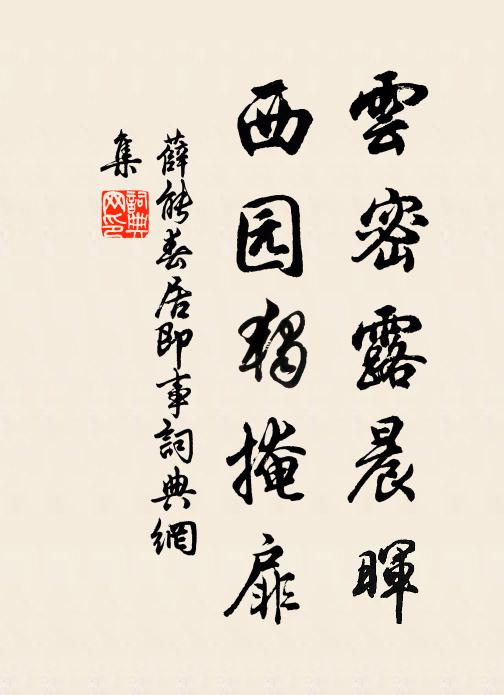 雲密露晨暉
西园獨掩扉
薛能春居即事詞典網
集
詞典網印